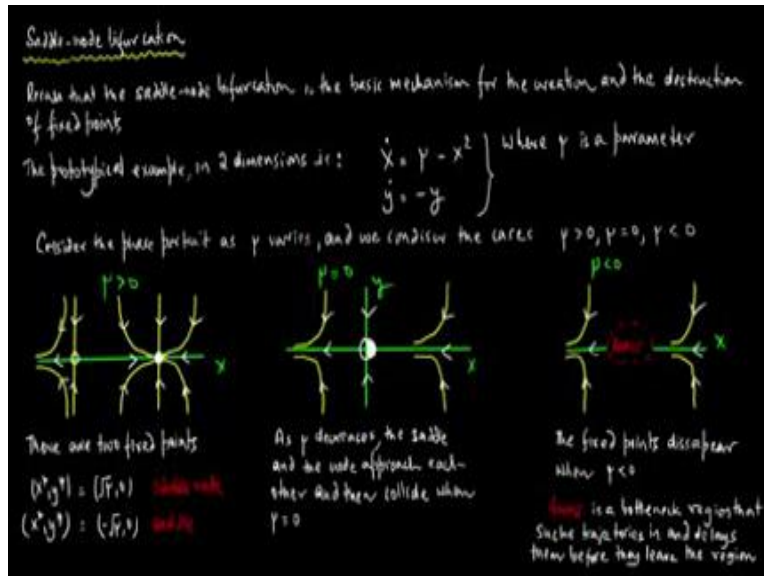 Saddle-node bifurcation
Recall that the saddle-node bifurcation is the basic mechanism for the creation and the destruction
of fixed points
The prototypical example, in 2 dimensions is: ẋ = μ - x² } where μ is a parameter
ẏ = -y
Consider the phase portrait as μ varies, and we consider the cases μ>0, μ=0, μ<0
μ>0
x
μ=0
y
x
μ<0
x
There are two fixed points
(x*,y*) = (√μ,0) stable node
(x*,y*) = (-√μ,0) saddle
As μ decreases, the saddle
and the node approach each-
other and then collide when
μ=0
The fixed points dissapear
when μ<0
is a bottleneck region that
sucks trajectories in and delays
them before they leave the region